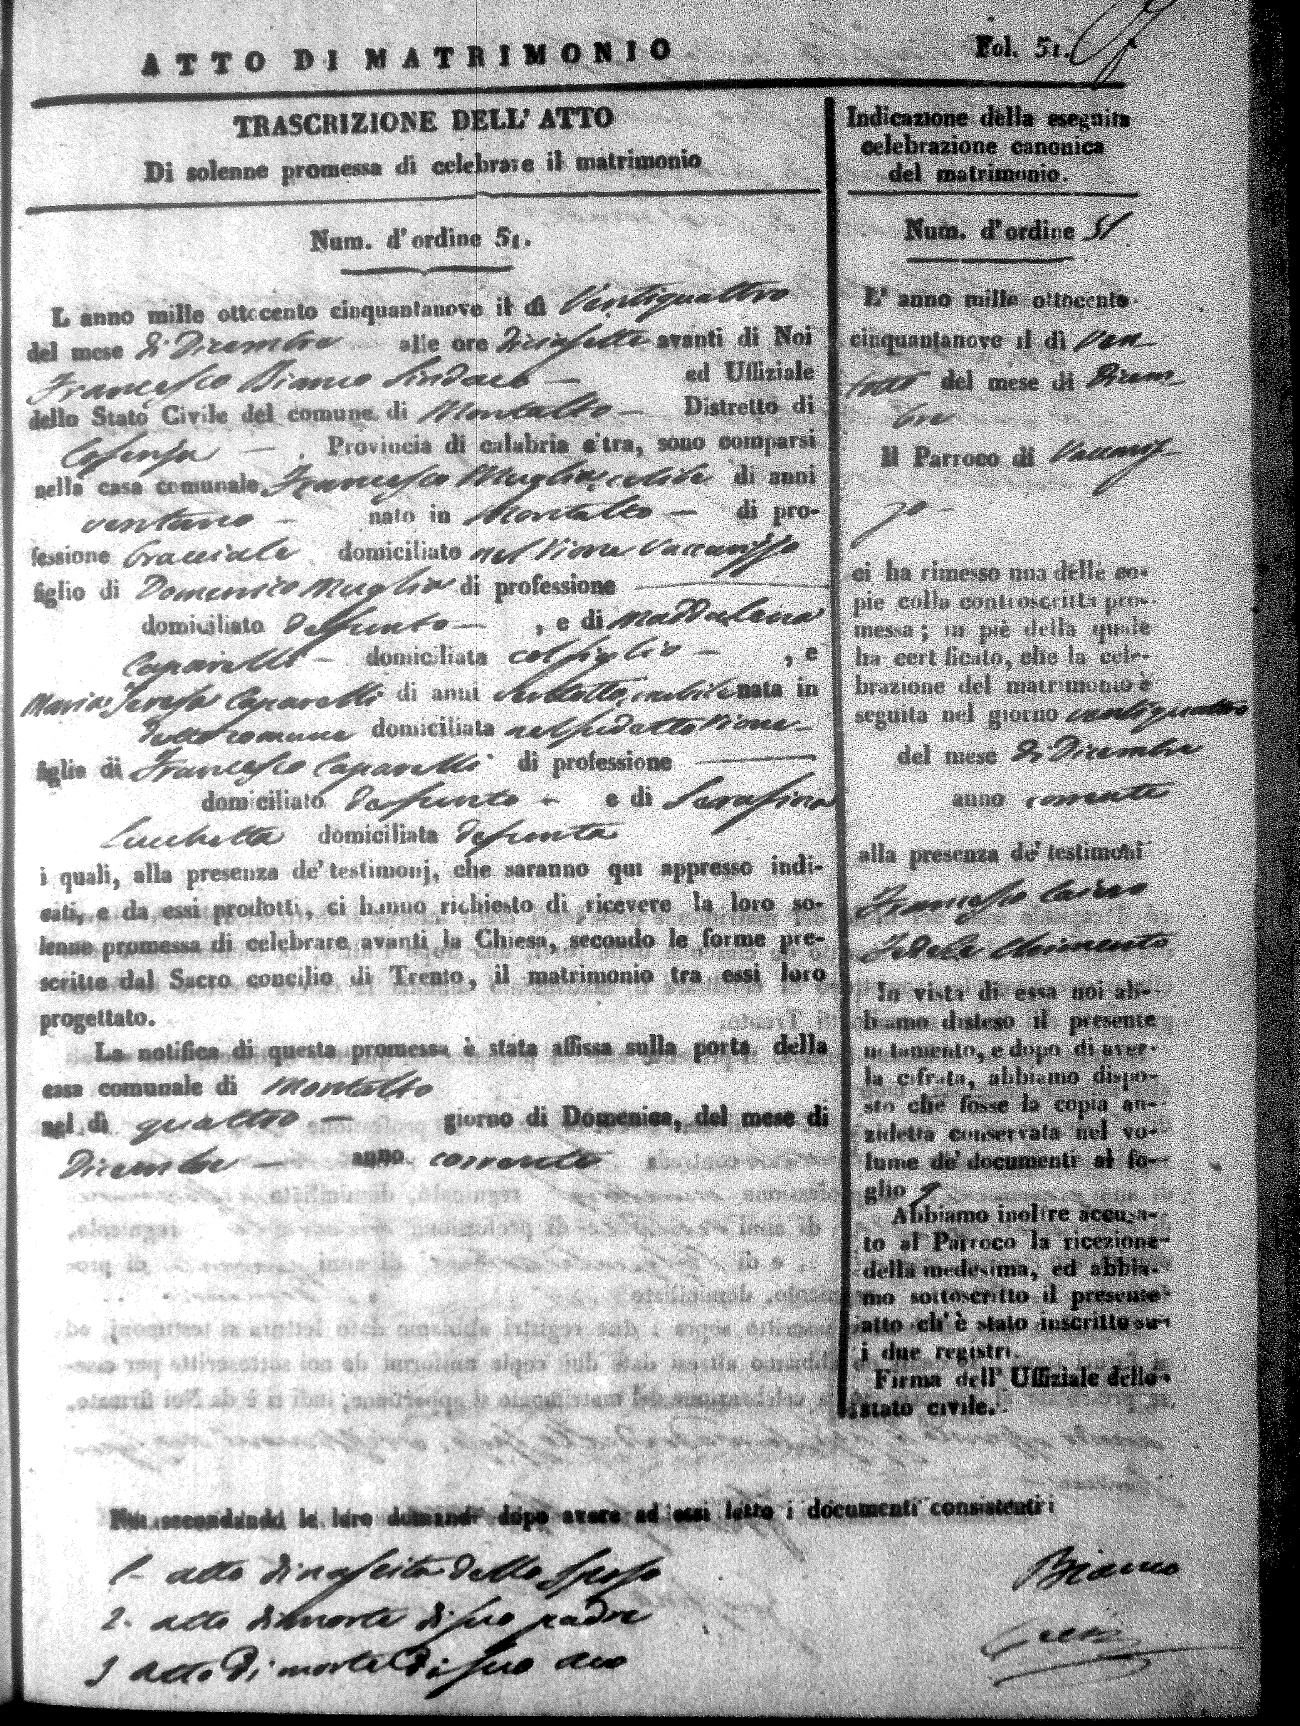 ATTO DI MATRIMONIO
Fol. 51.
TRASCRIZIONE DELL' ATTO
Di solenne promessa di celebrare il matrimonio
Num. d'ordine 51.
L anno mille ottocento cinquantanove il dì Ventiquattro
del mese di Dicembre alle ore Diciassette avanti di Noi
Francesco Bianco Sindaco ed Uffiziale
dello Stato Civile del comune di Montalto Distretto di
Cosenza Provincia di calabria citra, sono comparsi
nella casa comunale Francesco Muglia celibe di anni
ventuno nato in Montalto di pro-
fessione bracciale domiciliato nel Rione Vaccarizzo
figlio di Domenico Muglia di professione
domiciliato Defunto , e di Maddalena
Caparelli domiciliata col figlio , e
Maria Teresa Caparelli di anni nubile nata in
detto comune domiciliata nel sudetto Rione
figlia di Francesco Caparelli di professione
domiciliato Defunto e di Serafina
Lucchetta domiciliata defunta
i quali, alla presenza de' testimonj, che saranno qui appresso indi-
cati, e da essi prodotti, ci hanno richiesto di ricevere la loro so-
lenne promessa di celebrare avanti la Chiesa, secondo le forme pre-
scritte dal Sacro concilio di Trento, il matrimonio tra essi loro
progettato.
La notifica di questa promessa è stata affissa sulla porta della
casa comunale di Montalto
nel dì quattro giorno di Domenica, del mese di
Dicembre anno corrente
Noi secondando le loro domande dopo avere ad essi letto i documenti consistenti i
1- atto di nascita dello Sposo
2. atto di morte di suo padre
3 atto di morte di suo avo
Indicazione della eseguita
celebrazione canonica
del matrimonio.
Num. d'ordine 51
L' anno mille ottocento
cinquantanove il dì Ven
totto del mese di Dicem
bre
Il Parroco di Vaccariz
zo
ci ha rimesso una delle co-
pie colla controscritta pro-
messa; in piè della quale
ha certificato, che la cele-
brazione del matrimonio è
seguita nel giorno ventiquattro
del mese di Dicembre
anno corrente
alla presenza de' testimoni
Francesco Cairo
Fedele Chimento
In vista di essa noi ab-
biamo disteso il presente
notamento, e dopo di aver-
la cifrata, abbiamo dispo-
sto che fosse la copia an-
zidetta conservata nel vo-
lume de' documenti al fo-
glio 9
Abbiamo inoltre accusa-
to al Parroco la ricezione
della medesima, ed abbia-
mo sottoscritto il presente
atto ch' è stato inscritto su-
i due registri.
Firma dell' Uffiziale dello
stato civile.
Bianco